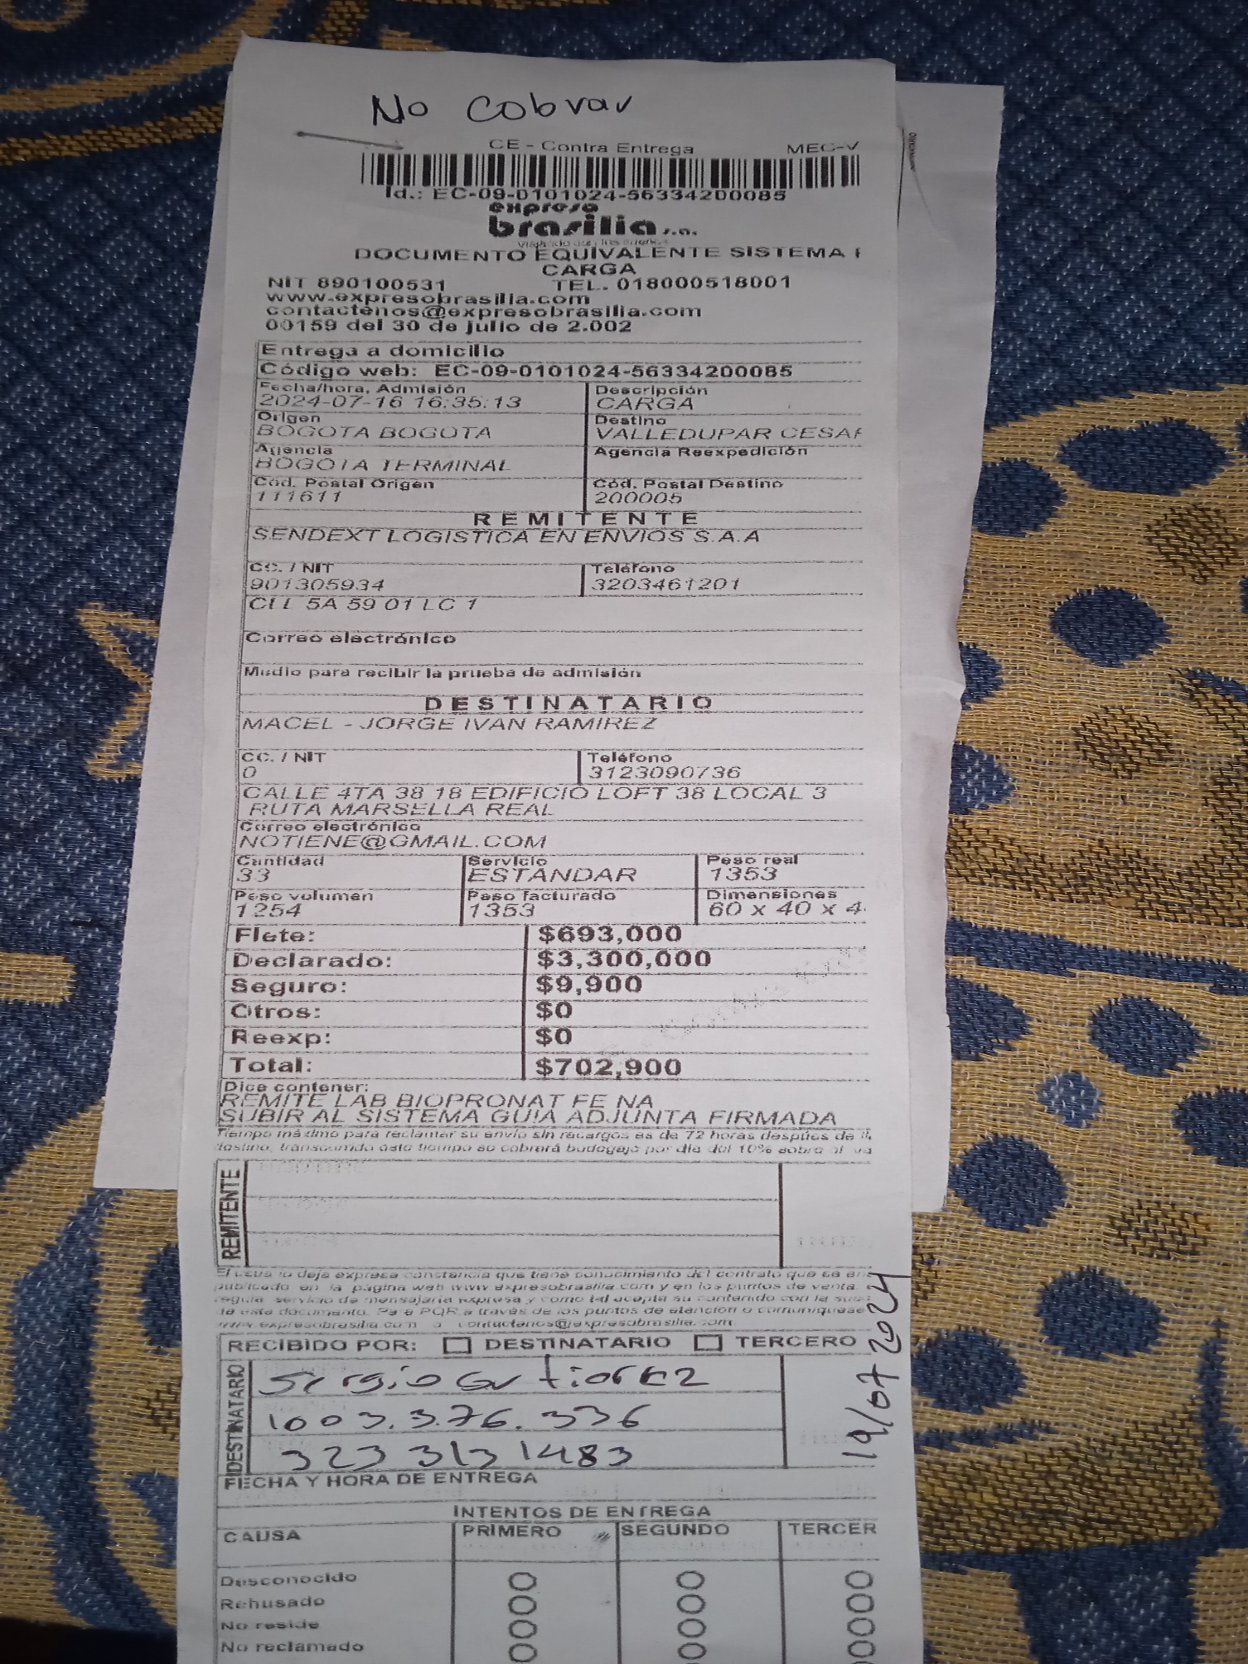 No cobrar
CE - Contra Entrega MEC-V
Id.: EC-09-0101024-56334200085
expreso
brasilia s.a.
DOCUMENTO EQUIVALENTE SISTEMA
CARGA
NIT 890100531 TEL. 018000518001
www.expresobrasilia.com
contactenos@expresobrasilia.com
00159 del 30 de julio de 2.002
Entrega a domicilio
Código web: EC-09-0101024-56334200085
Fecha/hora, Admisión Descripción
2024-07-16 16:35:13 CARGA
Origen Destino
BOGOTA BOGOTA VALLEDUPAR CESAR
Agencia Agencia Reexpedición
BOGOTA TERMINAL
Cód. Postal Origen Cód. Postal Destino
111611 200005
REMITENTE
SENDEXT LOGISTICA EN ENVIOS S.A.A
CC. / NIT Teléfono
901305934 3203461201
CLL 5A 59 01 LC 1
Correo electrónico
Medio para recibir la prueba de admisión
DESTINATARIO
MACEL - JORGE IVAN RAMIREZ
CC. / NIT Teléfono
0 3123090736
CALLE 4TA 38 18 EDIFICIO LOFT 38 LOCAL 3
RUTA MARSELLA REAL
Correo electrónico
NOTIENE@GMAIL.COM
Cantidad Servicio Peso real
33 ESTANDAR 1353
Peso volumen Peso facturado Dimensiones
1254 1353 60 x 40 x 4
Flete: $693,000
Declarado: $3,300,000
Seguro: $9,900
Otros: $0
Reexp: $0
Total: $702,900
Dice contener:
REMITE LAB BIOPRONAT FE NA
SUBIR AL SISTEMA GUIA ADJUNTA FIRMADA
Tiempo máximo para reclamar su envío sin recargos es de 72 horas después de
destino, transcurrido este tiempo se cobrará bodegaje por día del 10% sobre el va
REMITENTE
El usuario deja expresa constancia que tiene conocimiento del contrato que se en
publicado en la página web www.expresobrasilia.com y en los puntos de venta
regula servicio de mensajería expresa y como tal acepta su contenido con la
de este documento. Para PQR a través de los puntos de atención o comuníquese
www.expresobrasilia.com o contactenos@expresobrasilia.com
RECIBIDO POR: DESTINATARIO TERCERO
DESTINATARIO
Sergio Gutierrez
1003.376.336
323 313 1483
19/07 2024
FECHA Y HORA DE ENTREGA
INTENTOS DE ENTREGA
CAUSA PRIMERO SEGUNDO TERCER
Desconocido
Rehusado
No reside
No reclamado